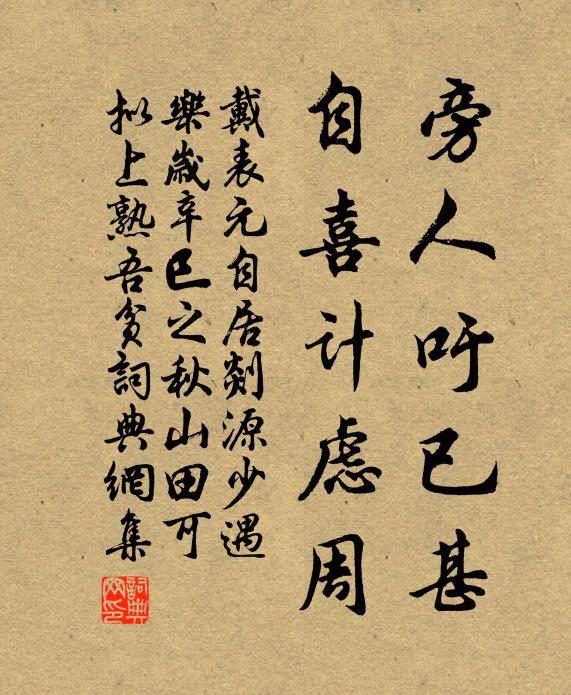 旁人吁已甚
自喜计虑周
戴表元自居剡源少遇
樂歲辛巳之秋山田可
拟上熟吾贫詞典網集
詞典网印